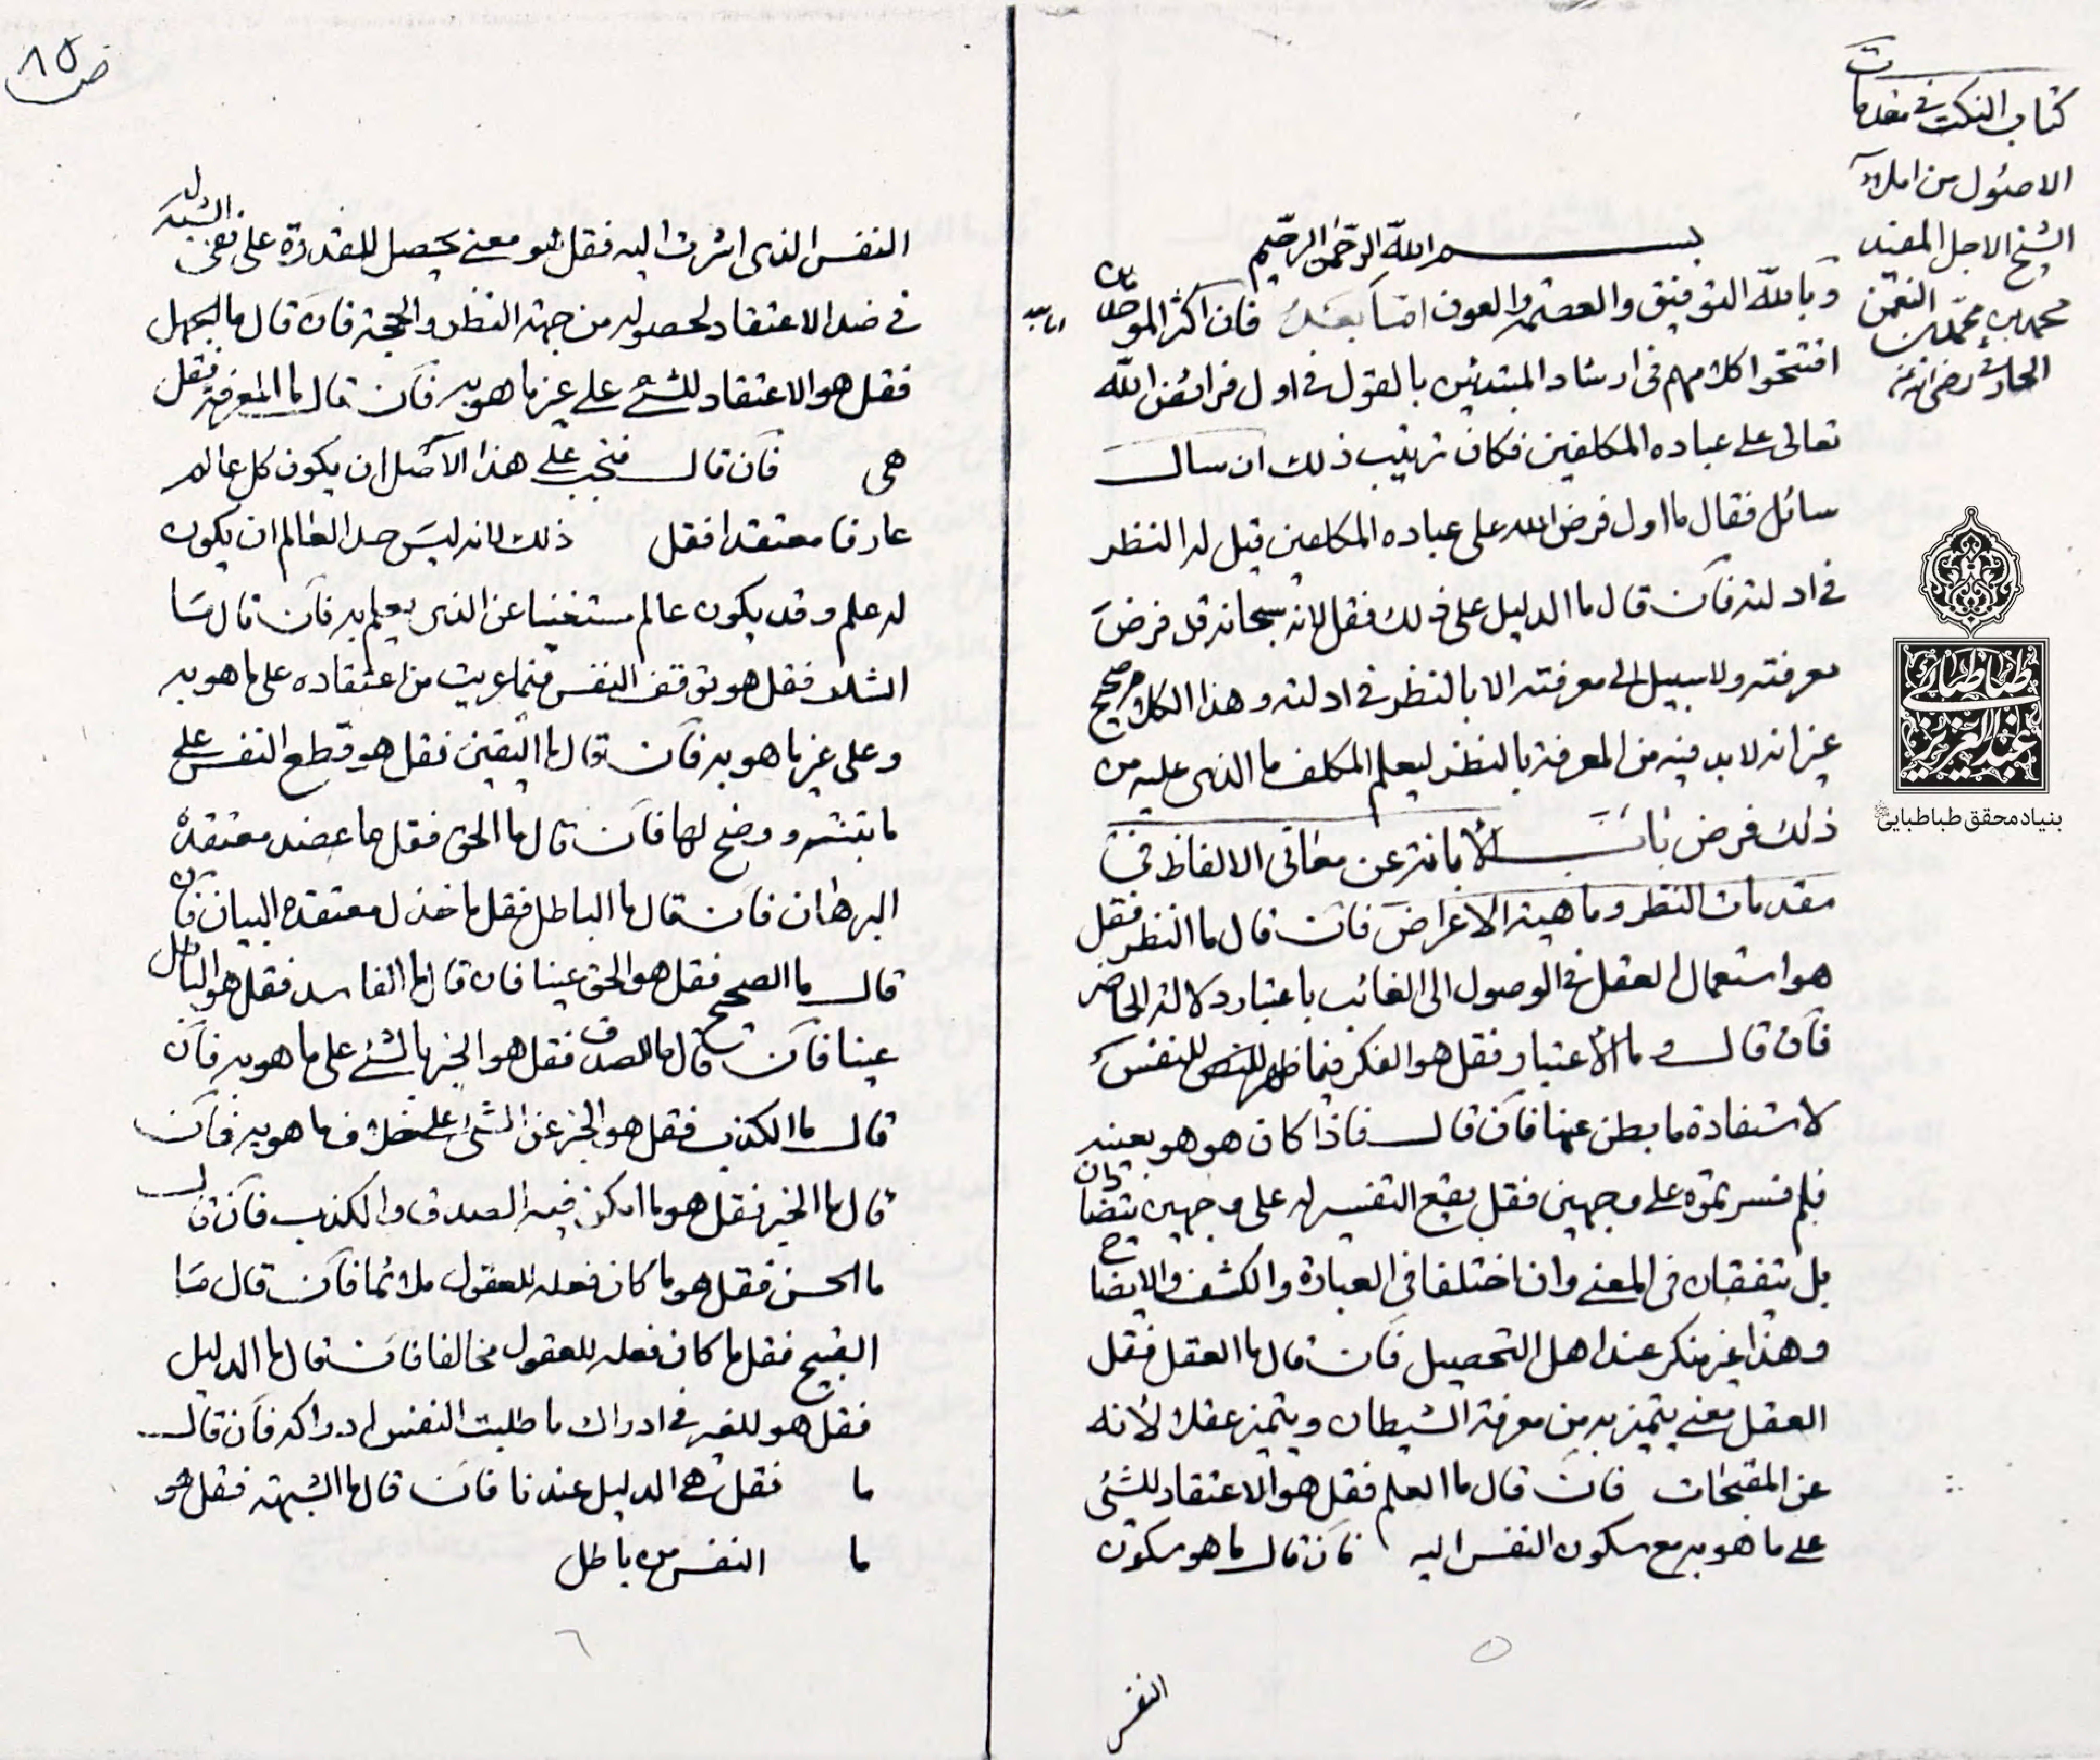 كتاب النكت في مقدمات
الاصول من املاء
الشيخ الاجل المفيد
محمد بن محمد بن النعمن
الحارثي رضي الله عنه
بسم الله الرحمن الرحيم
وبالله التوفيق والعصمة والعون اما بعد فان اكثر الموحدين
افتتحوا كلامهم في ارشاد المبتدئين بالقول في اول فرائض الله
تعالى على عباده المكلفين فكان ترتيب ذلك ان سال
سائل فقال ما اول فرض الله على عباده المكلفين قيل له النظر
في ادلته فان قال ما الدليل على ذلك فقل لانه سبحانه قد فرض
معرفته ولا سبيل الى معرفته الا بالنظر في ادلته وهذا الكلام صحيح
غير انه لا بد فيه من المعرفة بالنظر ليعلم المكلف ما الذي عليه من
ذلك فرض باب الابانة عن معاني الالفاظ في
مقدمات النظر وماهية الاعراض فان قال ما النظر فقل
هو استعمال العقل في الوصول الى الغائب باعتبار دلالة الحاضر
فان قال وما الاعتبار فقل هو الفكر فيما ظهر للنفس
لاستفادة ما بطن عنها فان قال فاذا كان هو هو بعينه
فلم فسرتموه على وجهين فقل يقع التفسير له على وجهين يتضادان
بل يتفقان في المعنى وان اختلفا في العبارة والكشف والايضاح
وهذا غير منكر عند اهل التحصيل فان قال ما العقل فقل
العقل معنى يتميز به من معرفة الشيطان ويتميز عقلا لانه
عن المقبحات فان قال ما العلم فقل هو الاعتقاد للشئ
على ما هو به مع سكون النفس اليه فان قال ما هو سكون
٥
النفس
ص ٨٥
النفس الذي اشرت اليه فقل هو معنى يحصل للقدرة على نفي الشبه
في ضد الاعتقاد لحصوله من جهة النظر والحجة فان قال ما الجهل
فقل هو الاعتقاد للشئ على غير ما هو به فان قال ما المعرفة فقل
هي فان قال فيجب على هذا الاصل ان يكون كل عالم
عارفا معتقدا فقل ذلك لانه ليس حد العالم ان يكون
له علم وقد يكون عالم مستغنيا عن الذي يعلم به فان قال ما
الشك فقل هو توقف النفس فيما عريت من اعتقاده على ما هو به
وعلى غير ما هو به فان قال ما اليقين فقل هو قطع النفس على
ما تبينته ووضح لها فان قال ما الحق فقل ما عضد معتقده
البرهان فان قال ما الباطل فقل ما خذل معتقده البيان فان
قال ما الصحيح فقل هو الحق عينا فان قال ما الفاسد فقل هو الباطل
عينا فان قال ما الصدق فقل هو الخبر بالشئ على ما هو به فان
قال ما الكذب فقل هو الخبر عن الشئ على خلاف ما هو به فان
قال ما الخبر فقل هو ما امكن فيه الصدق والكذب فان قال
ما الحسن فقل هو ما كان فعله للعقول ملائما فان قال ما
القبيح فقل ما كان فعله للعقول مخالفا فان قال ما الدليل
فقل هو للغير في ادراك ما طلبت النفس ادراكه فان قال
ما فقل هي الدليل عندنا فان قال ما الشبهة فقل هو
ما النفس من باطل
٦
طباطبائی
عبدالعزیز
بنیاد محقق طباطبایی